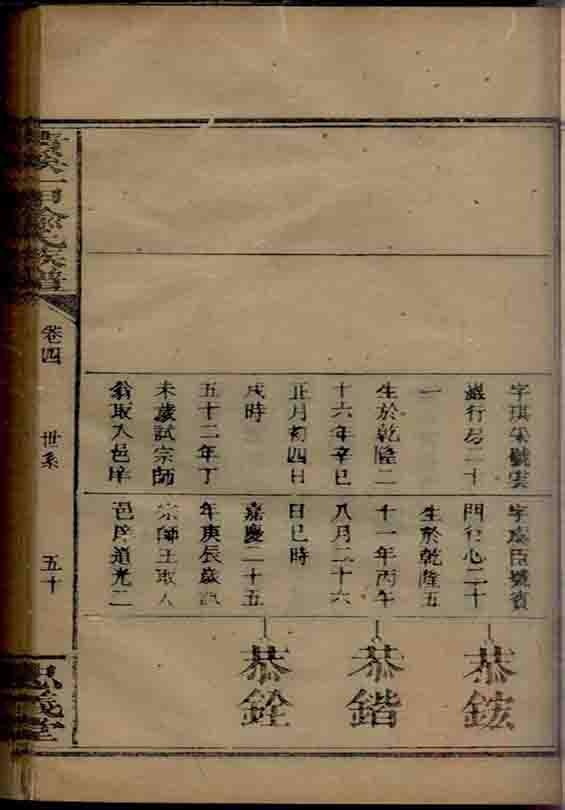 字琪朱號雲
巖行易二十
一
生於乾隆二
十六年辛巳
正月初四日
戌時
五十二年丁
未歲試宗師
翁取入邑庠
字虞臣號賓
門行心二十
生於乾隆五
十一年丙午
八月二十六
日巳時
嘉慶二十五
年庚辰歲試
宗師王取入
邑庠道光二
恭鋐
恭鍇
恭銓
氏族譜
卷四
世系
五十
忠義堂